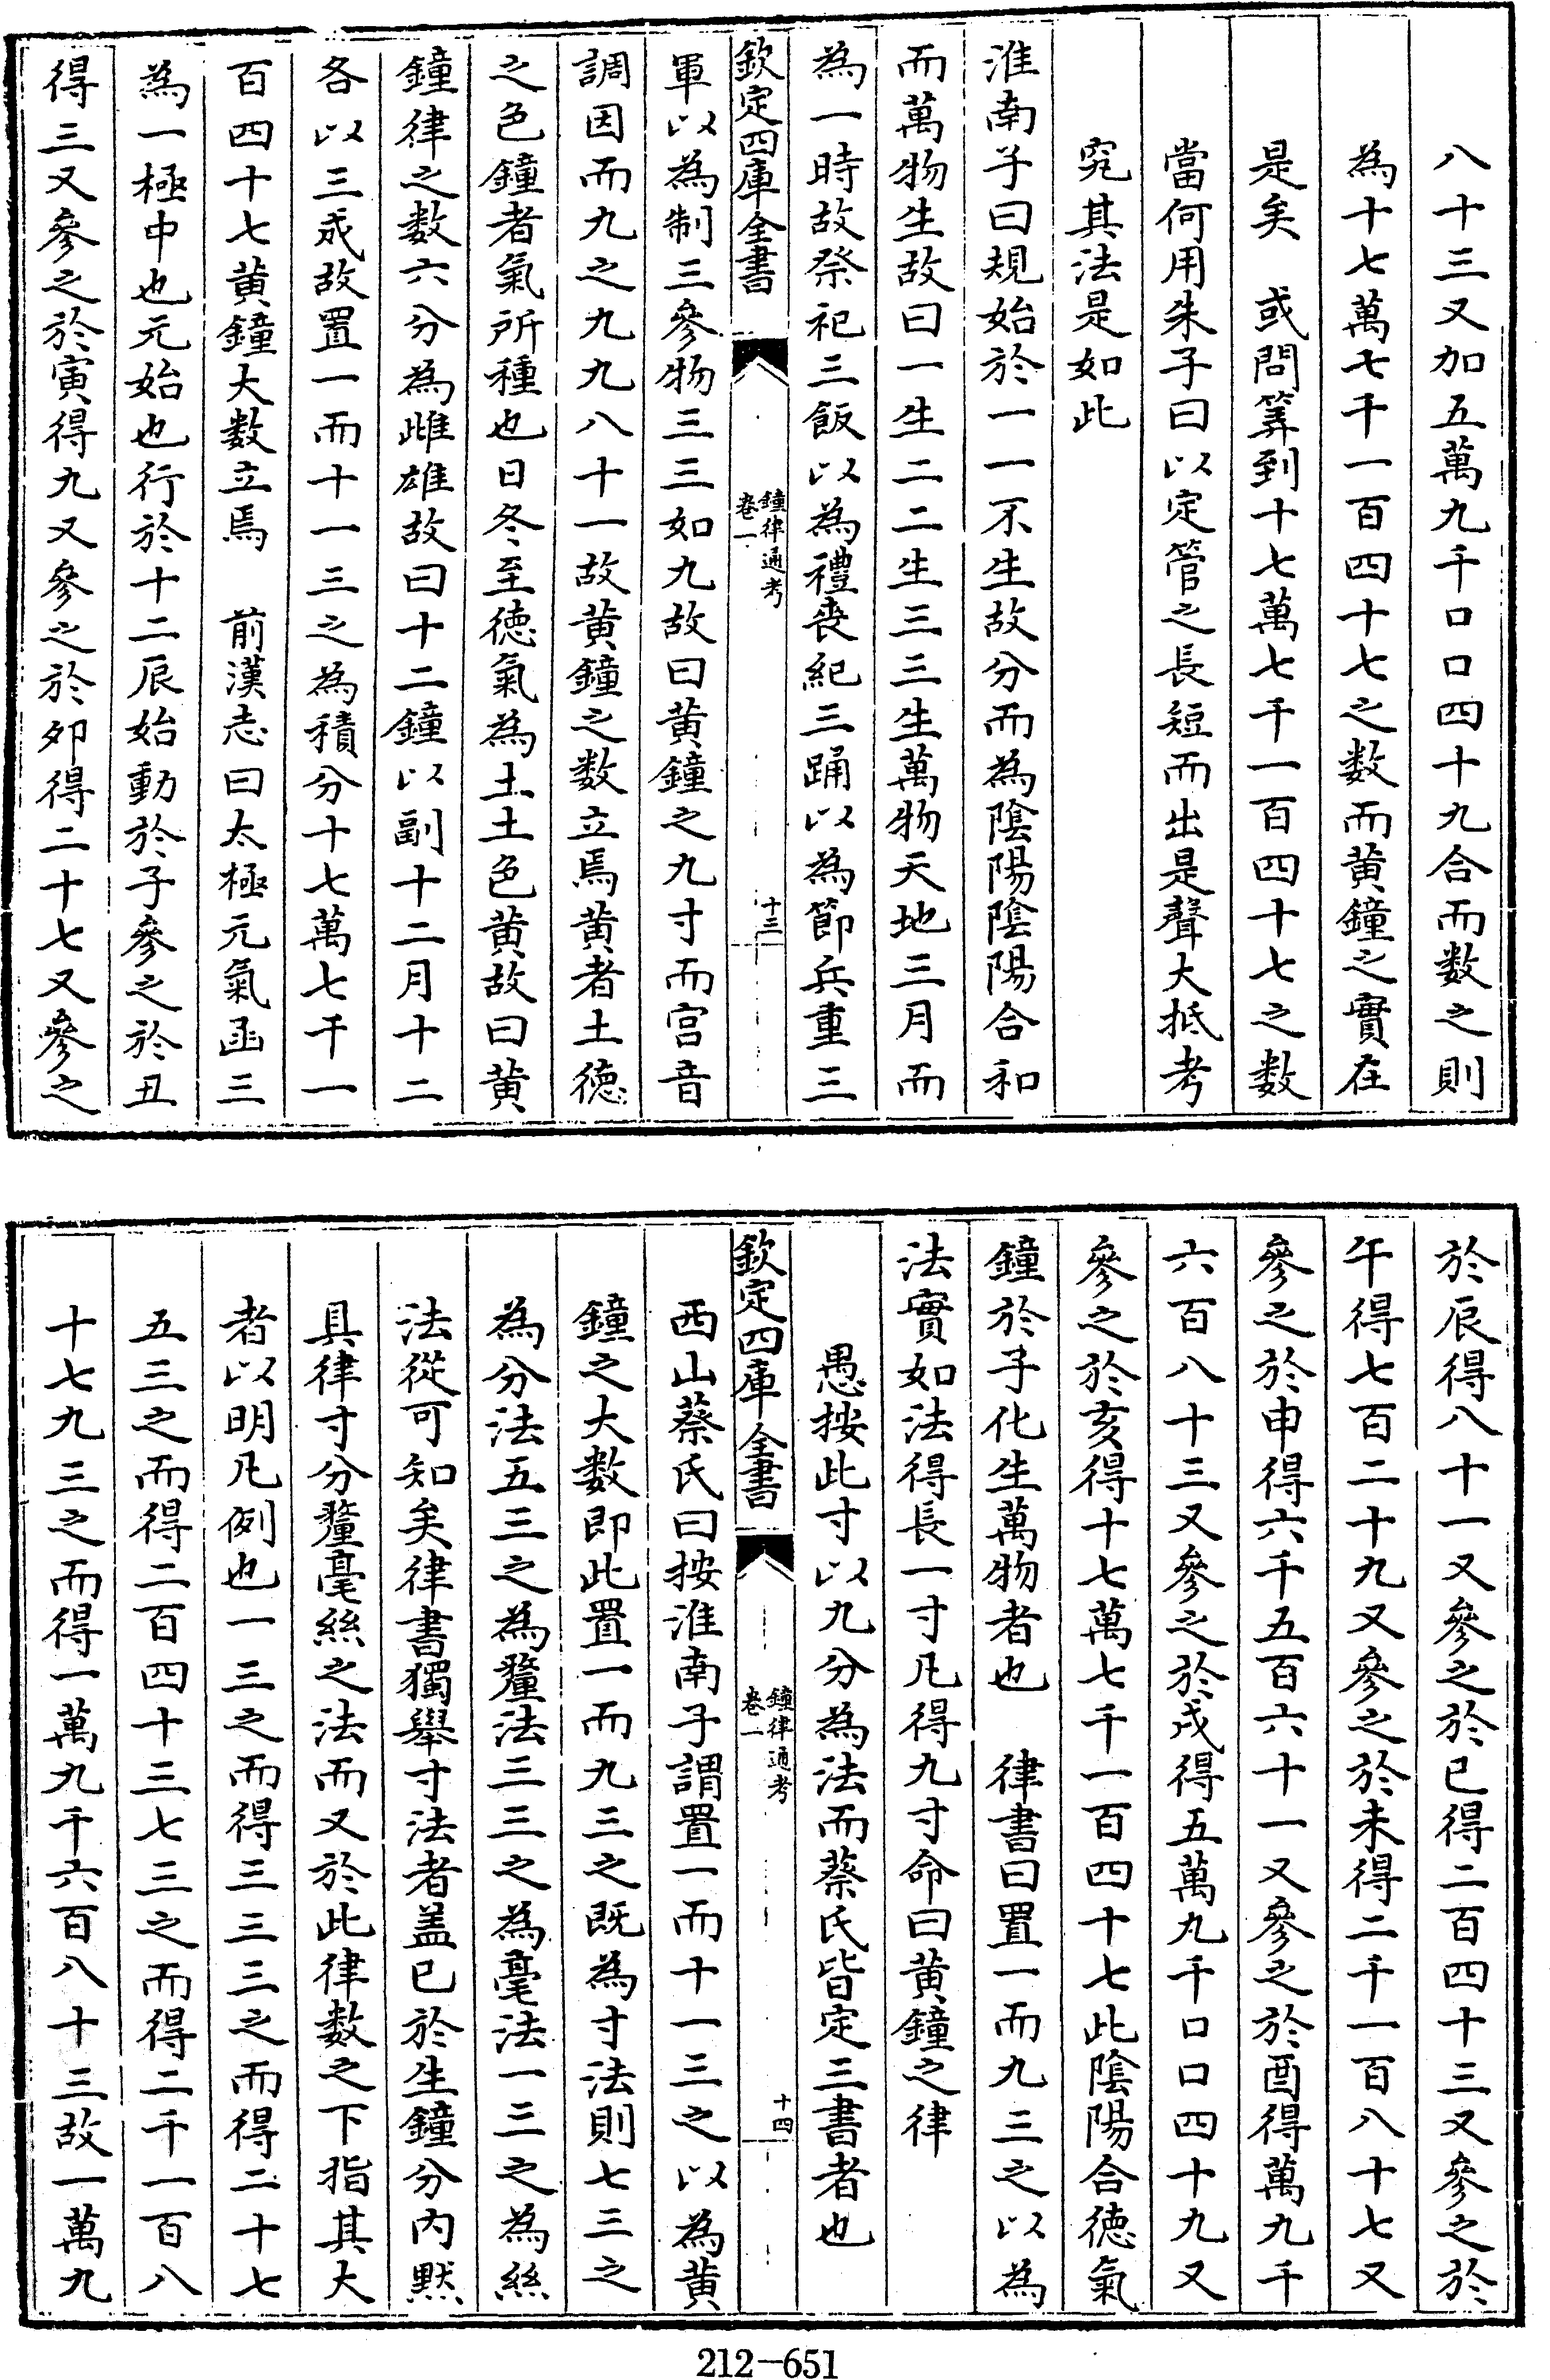 八十三又加五萬九千口口四十九合而数之則
為十七萬七千一百四十七之数而黄鐘之實在
是矣　或問筭到十七萬七千一百四十七之数
當何用朱子曰以定管之長短而出是聲大抵考
究其法是如此
淮南子曰規始於一一不生故分而為陰陽陰陽合和
而萬物生故曰一生二二生三三生萬物天地三月而
為一時故祭祀三飯以為禮喪紀三踊以為節兵重三
欽定四庫全書
鐘律通考
卷一
十三
軍以為制三參物三三如九故曰黄鐘之九寸而宫音
調因而九之九九八十一故黄鐘之数立焉黄者土德
之色鐘者氣所種也日冬至德氣為土土色黄故曰黄
鐘律之数六分為雌雄故曰十二鐘以副十二月十二
各以三成故置一而十一三之為積分十七萬七千一
百四十七黄鐘大数立焉　前漢志曰太極元氣函三
為一極中也元始也行於十二辰始動於子參之於丑
得三又參之於寅得九又參之於夘得二十七又參之
於辰得八十一又參之於巳得二百四十三又參之於
午得七百二十九又參之於未得二千一百八十七又
參之於申得六千五百六十一又參之於酉得萬九千
六百八十三又參之於戌得五萬九千口口四十九又
參之於亥得十七萬七千一百四十七此陰陽合德氣
鐘於子化生萬物者也　律書曰置一而九三之以為
法實如法得長一寸凡得九寸命曰黄鐘之律
愚按此寸以九分為法而蔡氏皆定三書者也
欽定四庫全書
鐘律通考
卷一
十四
西山蔡氏曰按淮南子謂置一而十一三之以為黄
鐘之大数即此置一而九三之既為寸法則七三之
為分法五三之為釐法三三之為毫法一三之為絲
法從可知矣律書獨舉寸法者盖已於生鐘分内黙
具律寸分釐毫絲之法而又於此律数之下指其大
者以明凡例也一三之而得三三三之而得二十七
五三之而得二百四十三七三之而得二千一百八
十七九三之而得一萬九千六百八十三故一萬九
212—651